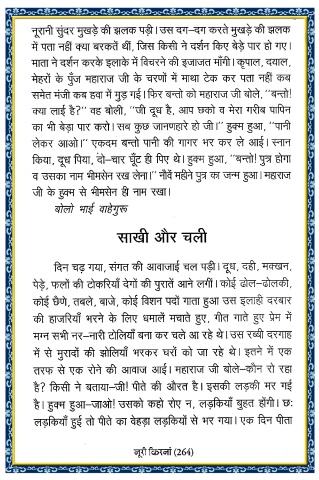 नूरानी सुंदर मुखड़े की झलक पड़ी। उस दग–दग करते मुखड़े की झलक
में पता नहीं क्या बरकतें थीं, जिस किसी ने दर्शन किए बेड़े पार हो गए।
माता ने दर्शन करके इलाके में विचरने की इजाजत माँगी। कृपाल, दयाल,
मेहरों के पुँज महाराज जी के चरणों में माथा टेक कर पता नहीं कब
समेत मंजी कब हवा में गुड़ गई। फिर बन्तो को महाराज जी बोले, "बन्तो!
क्या लाई है?" वह बोली, "जी दूध है, आप छको व मेरा गरीब पापिन
का भी बेड़ा पार करो। सब कुछ जानणहारे हो जी।" हुक्म हुआ, "पानी
लेकर आओ।" एकदम बन्तो पानी की गागर भर कर ले आई। स्नान
किया, दूध पिया, दो–चार घूँट ही पिए थे। हुक्म हुआ, "बन्तो! पुत्र होगा
व उसका नाम भीमसेन रख लेना।" नौवें महीने पुत्र का जन्म हुआ। महाराज
जी के हुक्म से भीमसेन ही नाम रखा।
बोलो भाई वाहेगुरू
साखी और चली
दिन चढ़ गया, संगत की आवाजाई चल पड़ी। दूध, दही, मक्खन,
पेड़े, फलों की टोकरियाँ देगों की पुरातें आने लगीं। कोई ढोल–ढोलकी,
कोई छैणे, तबले, बाजे, कोई विशन पदों गाता हुआ उस इलाही दरबार
की हाजरियाँ भरने के लिए धमालें मचाते हुए, गीत गाते हुए प्रेम में
मग्न सभी नर–नारी टोलियाँ बना कर चले आ रहे थे। उस रब्बी दरगाह
में से मुरादों की झोलियाँ भरकर घरों को जा रहे थे। इतने में एक
तरफ से एक रोने की आवाज आई। महाराज जी बोले–कौन रो रहा
है? किसी ने बताया–जी! पीते की औरत है। इसकी लड़की मर गई
है। हुक्म हुआ–जाओ! उसको कहो रोए न, लड़कियाँ बहुत होंगी। छः
लड़कियाँ हुई तो पीते का वेहड़ा लड़कियों से भर गया। एक दिन पीता
नूरी किरनां (264)